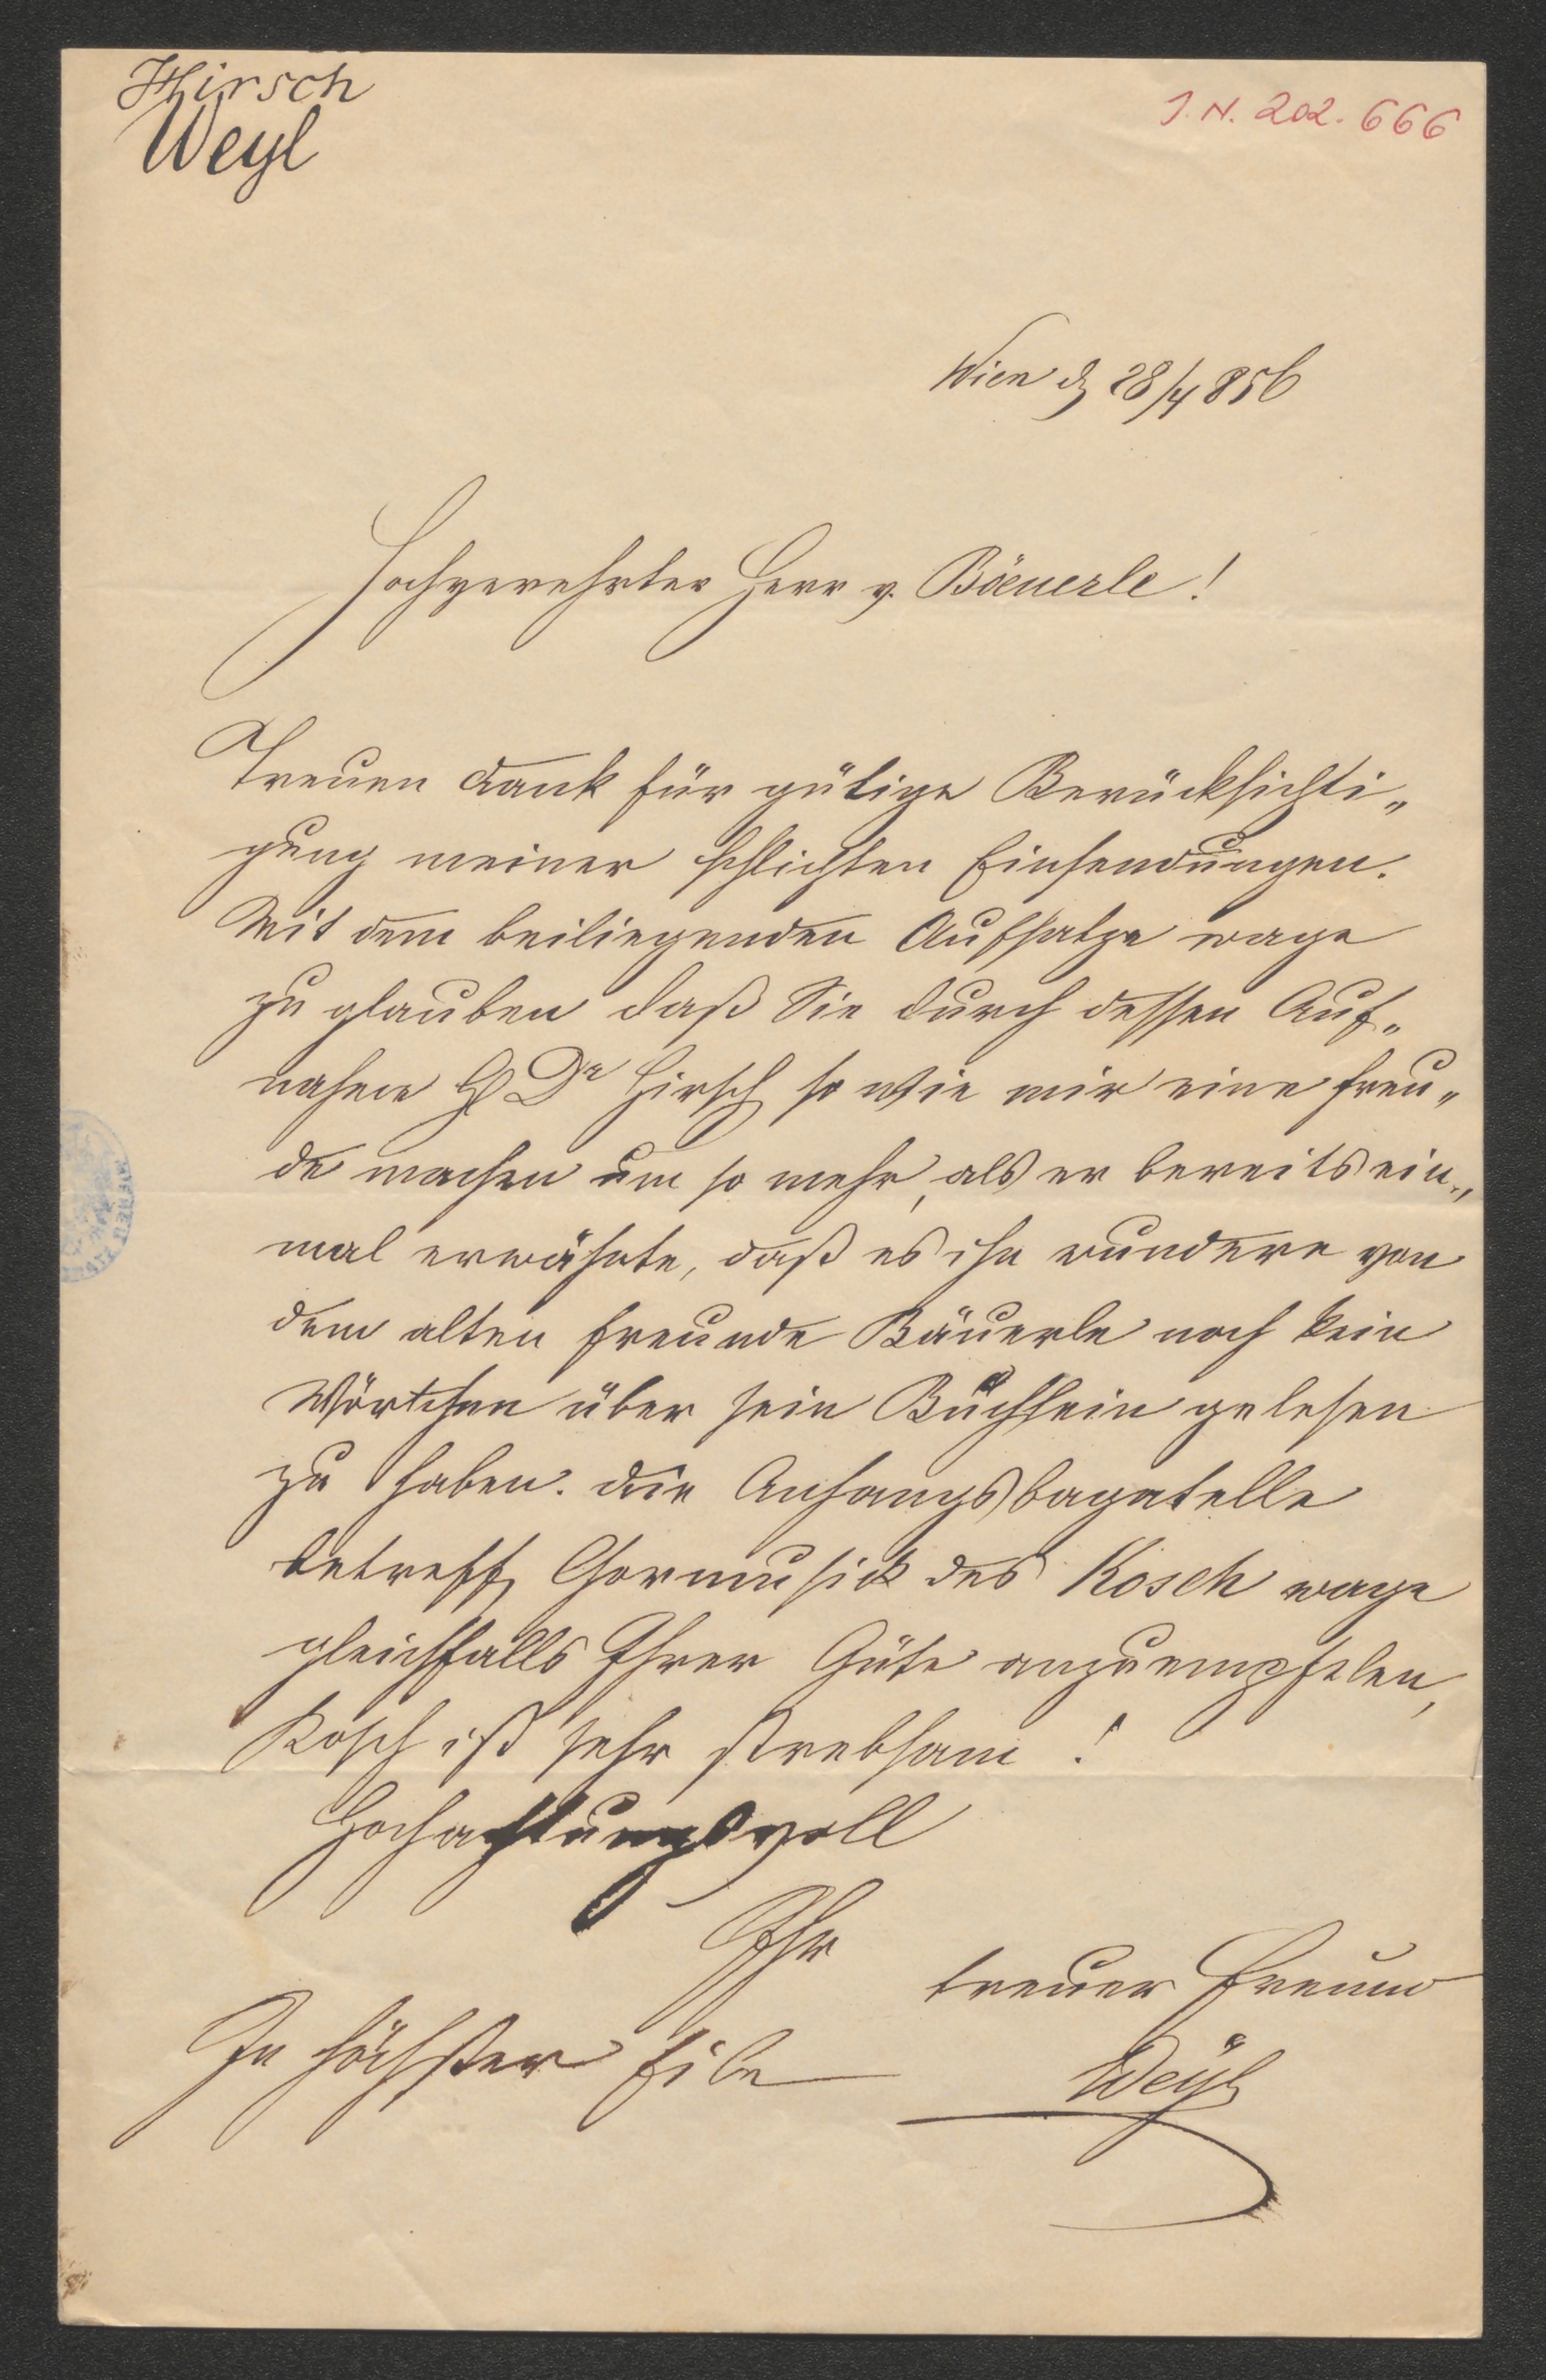 Hirsch
Weyl
J. N. 202.666
Wien d 28/4 856
Hochverehrter Herr v. Bäuerle!
Treuen Dank für gütige Berücksichti„
gung meiner schlichten Einsendungen.
Mit dem beiliegenden Aufsatze wage
zu glauben daß Sie durch dessen Auf„
nahme H Dr Hirsch so wie mir eine Freu„
de machen um so mehr, als er bereits ein„
mal erwähnte, daß es ihn wundere von
dem alten Freunde Bäuerle noch kein
Wörtchen über sein Büchlein gelesen
zu haben. Die Anfangsbagatelle
betreff Chormusick des Kosch wage
gleichfalls Ihrer Güte anzuempfelen,
Kosch ist sehr strebsam!
Hochachtungsvoll
Ihr
treuer Freund
In höchster Eile
Weyl